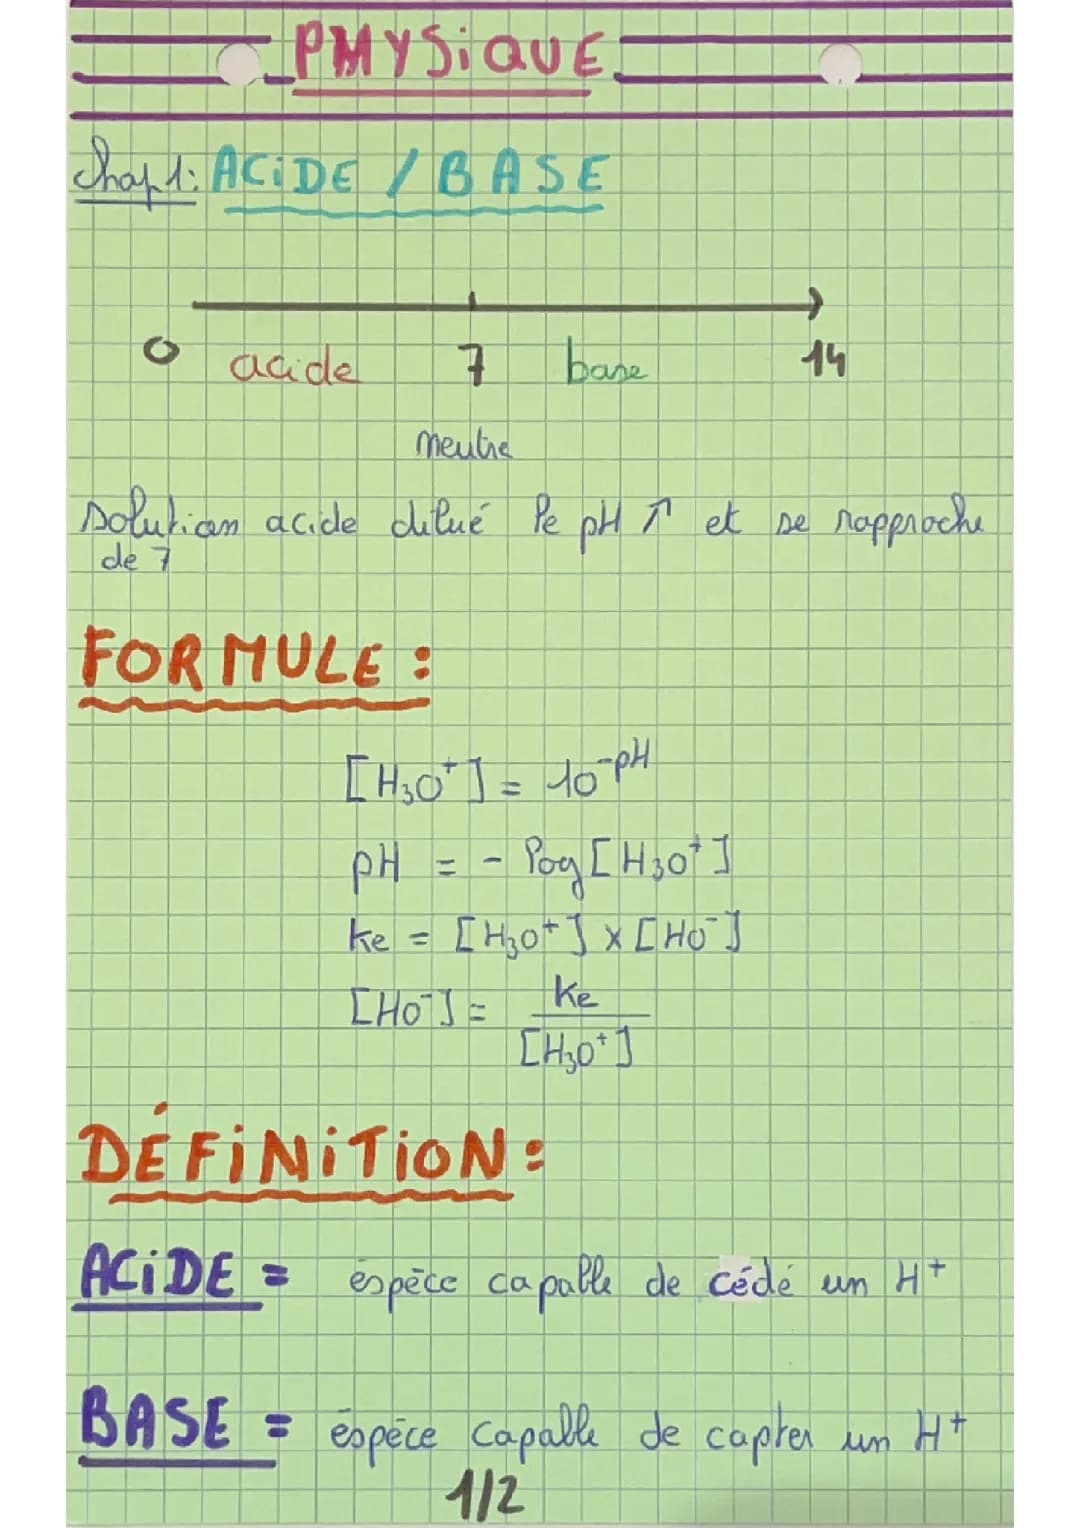 PHYSiQUE
Chap 1: ACiDE / BASE
0 acide 7 base 14
neutre
solution acide dilué le pH ↗ et se rapproche
de 7
FORMULE :
[H₃O⁺] = 10⁻ᵖᴴ
pH = - log [H₃O⁺]
ke = [H₃O⁺] x [HO⁻]
[HO⁻] = Ke
[H₃O⁺]
DÉFiNiTiON :
ACiDE = éspèce capable de cédé un H⁺
BASE = éspèce capable de capter un H⁺
1/2